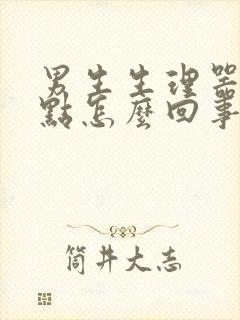 男生生理器
點怎麼回事
筒井大志